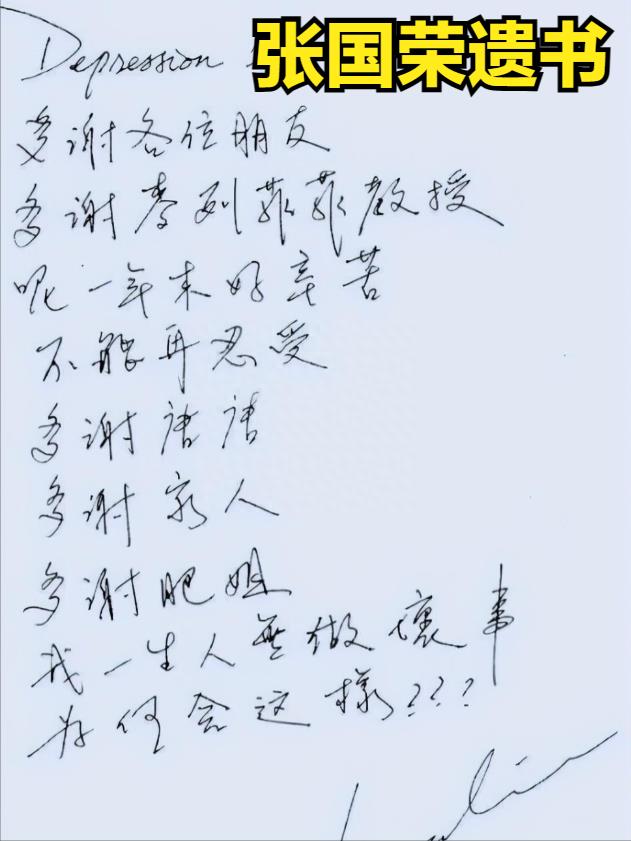 Depression
张国荣遗书
多谢各位朋友
多谢李列菲菲教授
呢一年来好辛苦
不能再忍受
多谢唐唐
多谢家人
多谢肥姐
我一生人無做壞事
为何会这樣???